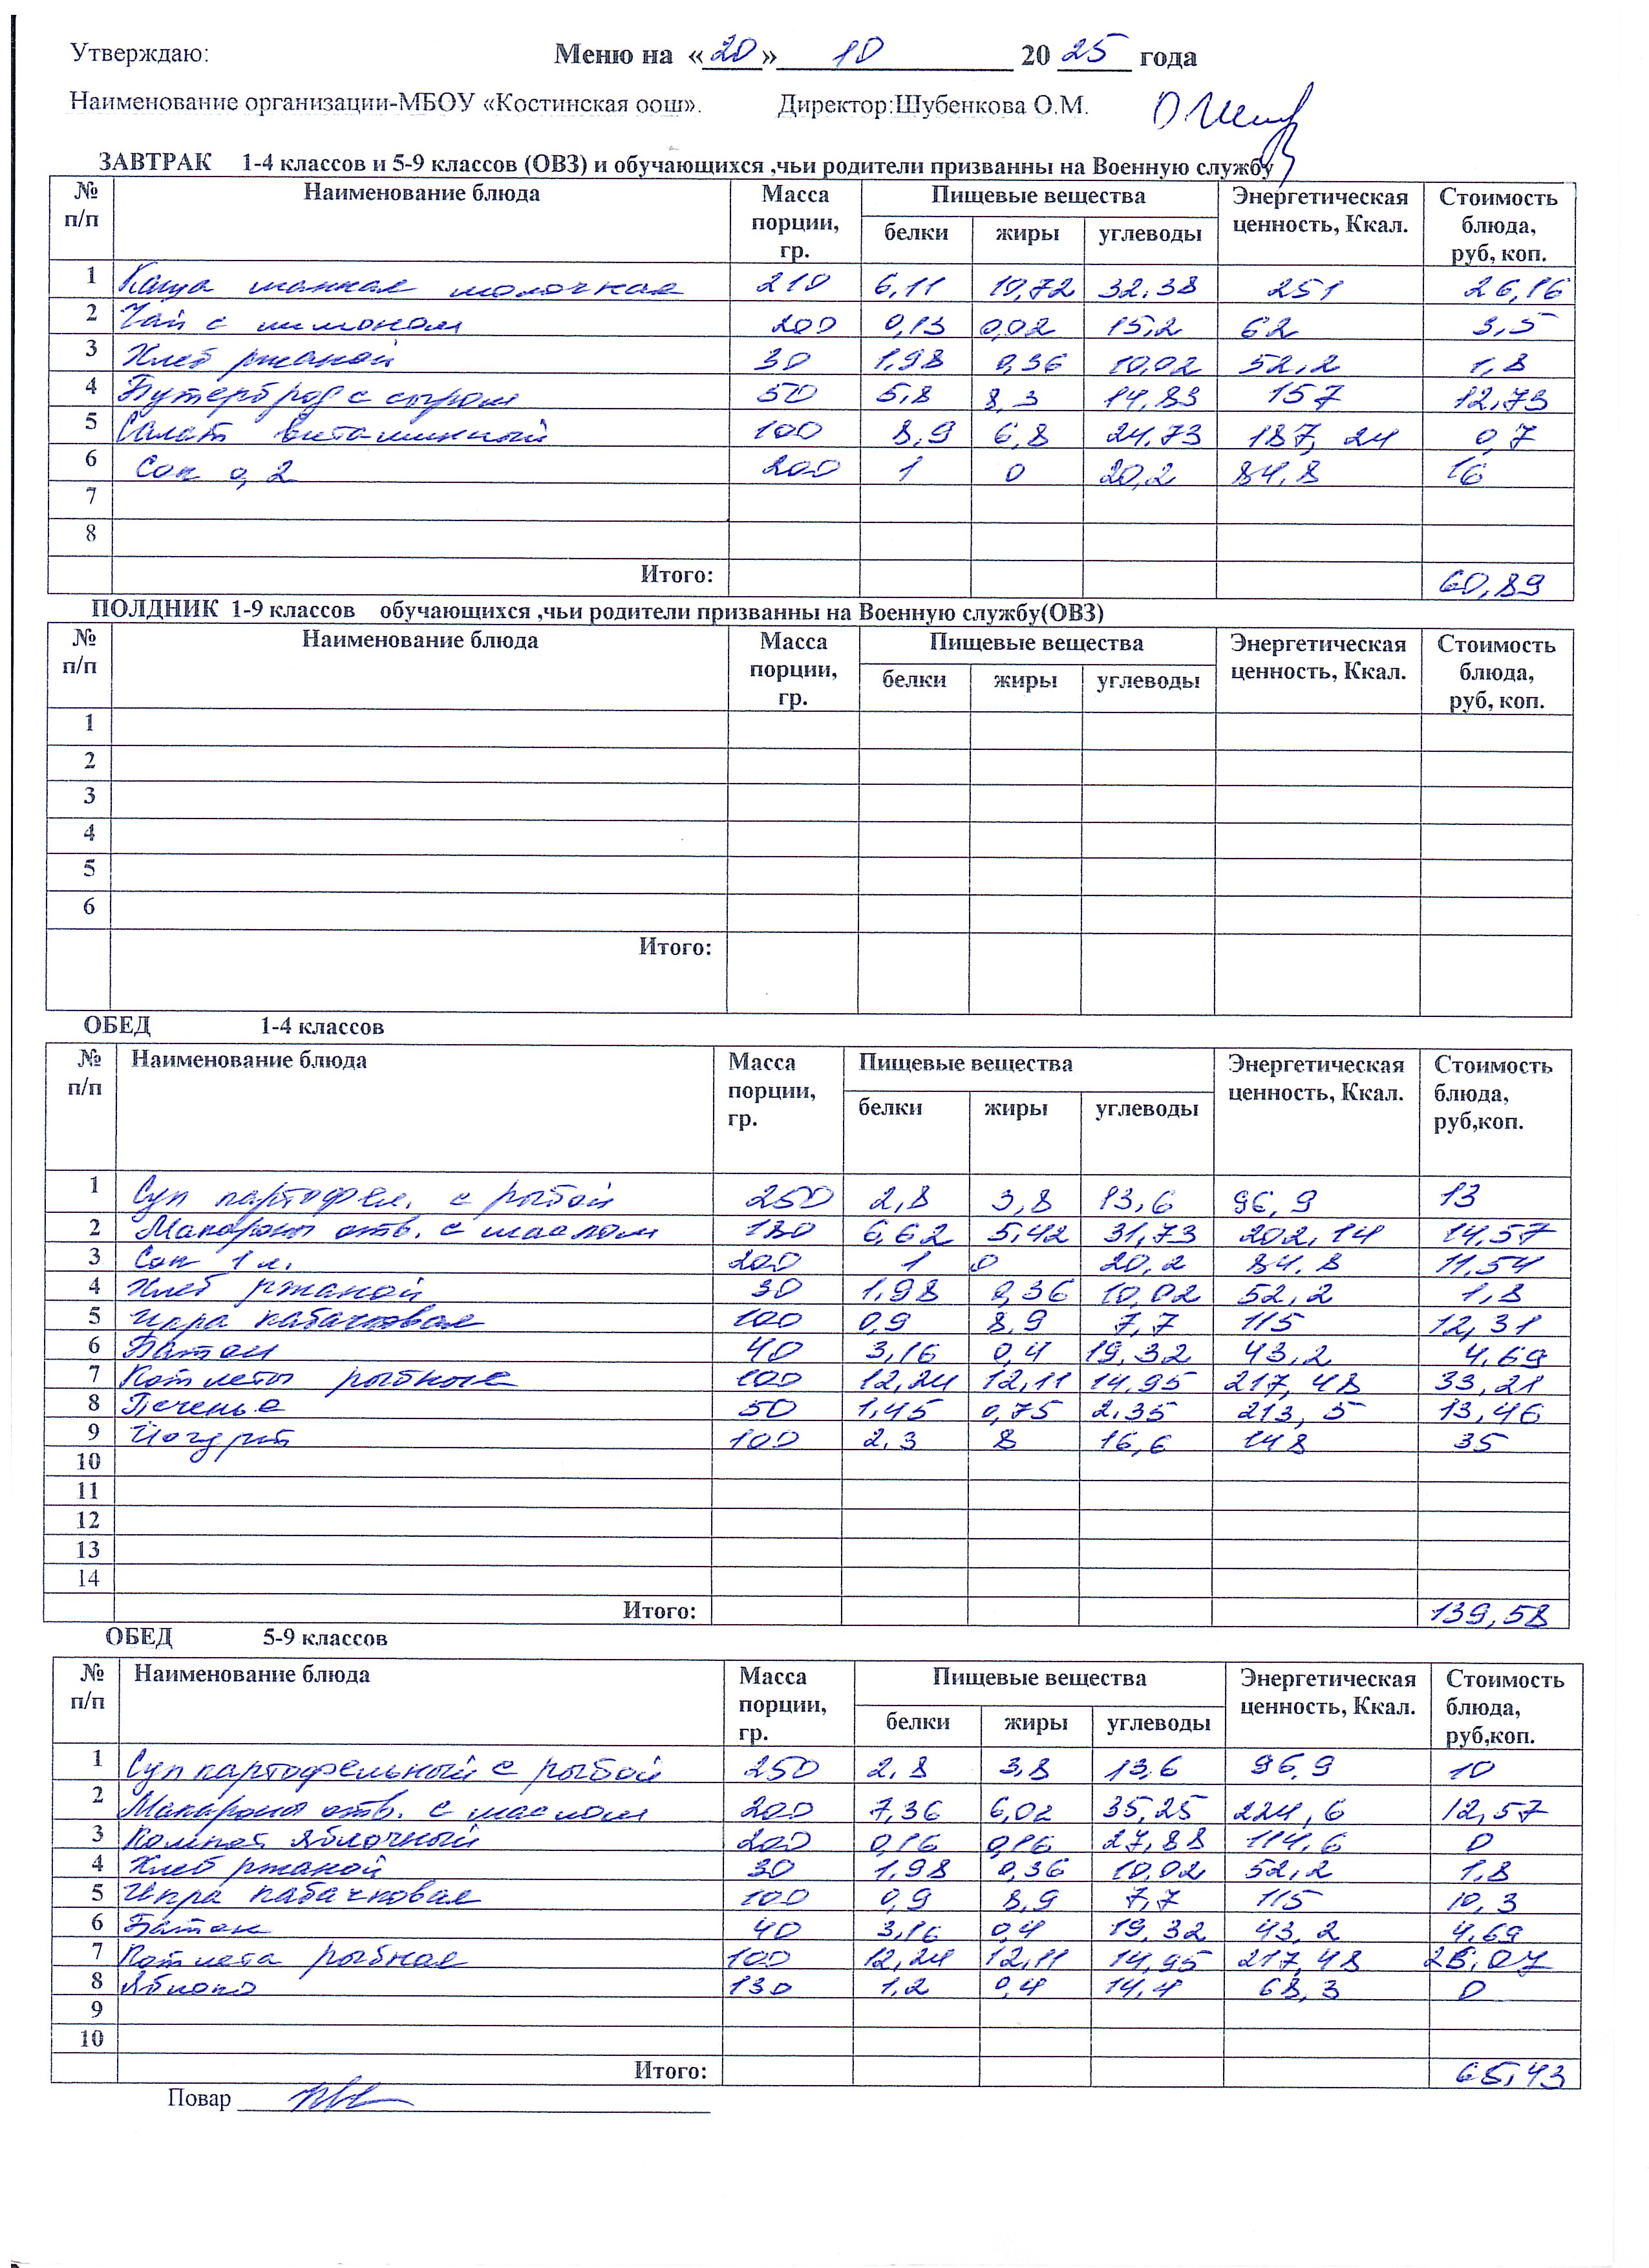 Утверждаю: Меню на «20» 10 2025 года
Наименование организации-МБОУ «Костинская оош». Директор:Шубенкова О.М.
ЗАВТРАК 1-4 классов и 5-9 классов (ОВЗ) и обучающихся ,чьи родители призванны на Военную службу
№ п/п Наименование блюда Масса порции, гр. Пищевые вещества Энергетическая ценность, Ккал. Стоимость блюда, руб, коп.
белки жиры углеводы
1 Каша манная молочная 210 6,11 10,72 32.38 251 26,16
2 Чай с лимоном 200 0,13 0,02 15,2 62 3,5
3 Хлеб ржаной 30 1,98 0,36 10,02 52,2 1,8
4 Бутерброд с сыром 50 5,8 8,3 14,83 157 12,73
5 Салат витаминный 100 8,9 6,8 24,73 187,24 0,7
6 Сок 0,2 200 1 0 20,2 84,8 16
7
8
Итого: 60,89
ПОЛДНИК 1-9 классов обучающихся ,чьи родители призванны на Военную службу(ОВЗ)
№ п/п Наименование блюда Масса порции, гр. Пищевые вещества Энергетическая ценность, Ккал. Стоимость блюда, руб, коп.
белки жиры углеводы
1
2
3
4
5
6
Итого:
ОБЕД 1-4 классов
№ п/п Наименование блюда Масса порции, гр. Пищевые вещества Энергетическая ценность, Ккал. Стоимость блюда, руб,коп.
белки жиры углеводы
1 Суп картофел. с рыбой 250 2,8 3,8 13,6 96,9 13
2 Макароны отв. с маслом 180 6,62 5,42 31,73 202,14 14,57
3 Сок 1 л. 200 1 0 20,2 84,8 11,54
4 Хлеб ржаной 30 1,98 0,36 10,02 52,2 1,8
5 Икра кабачковая 100 0,9 8,9 7,7 115 12,31
6 Батон 40 3,16 0,4 19,32 43,2 4,69
7 Котлеты рыбные 100 12,24 12,11 14,95 217,48 33,21
8 Печенье 50 1,45 0,75 2,35 213,5 13,46
9 Йогурт 100 2,3 8 16,6 148 35
10
11
12
13
14
Итого: 139,58
ОБЕД 5-9 классов
№ п/п Наименование блюда Масса порции, гр. Пищевые вещества Энергетическая ценность, Ккал. Стоимость блюда, руб,коп.
белки жиры углеводы
1 Суп картофельный с рыбой 250 2,8 3,8 13,6 96,9 10
2 Макароны отв. с маслом 200 7,36 6,02 35,25 224,6 12,57
3 Компот яблочный 200 0,16 0,16 27,88 114,6 0
4 Хлеб ржаной 30 1,98 0,36 10,02 52,2 1,8
5 Икра кабачковая 100 0,9 8,9 7,7 115 10,3
6 Батон 40 3,16 0,4 19,32 43,2 4,69
7 Котлета рыбная 100 12,24 12,11 14,95 217,48 26,07
8 Яблоко 130 1,2 0,4 14,4 68,3 0
9
10
Итого: 65,43
Повар